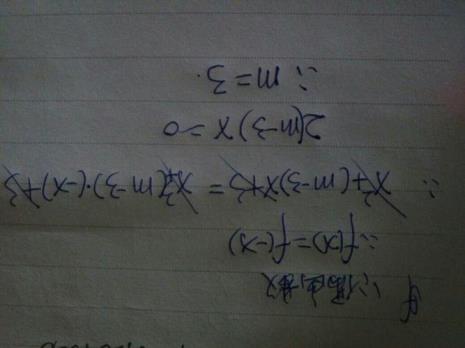 ∵偶函数
∴f(x)=f(-x)
∴ x²+(m-3)x+3 = x²+(m-3)·(-x)+3
2(m-3)x=0
∴m=3.